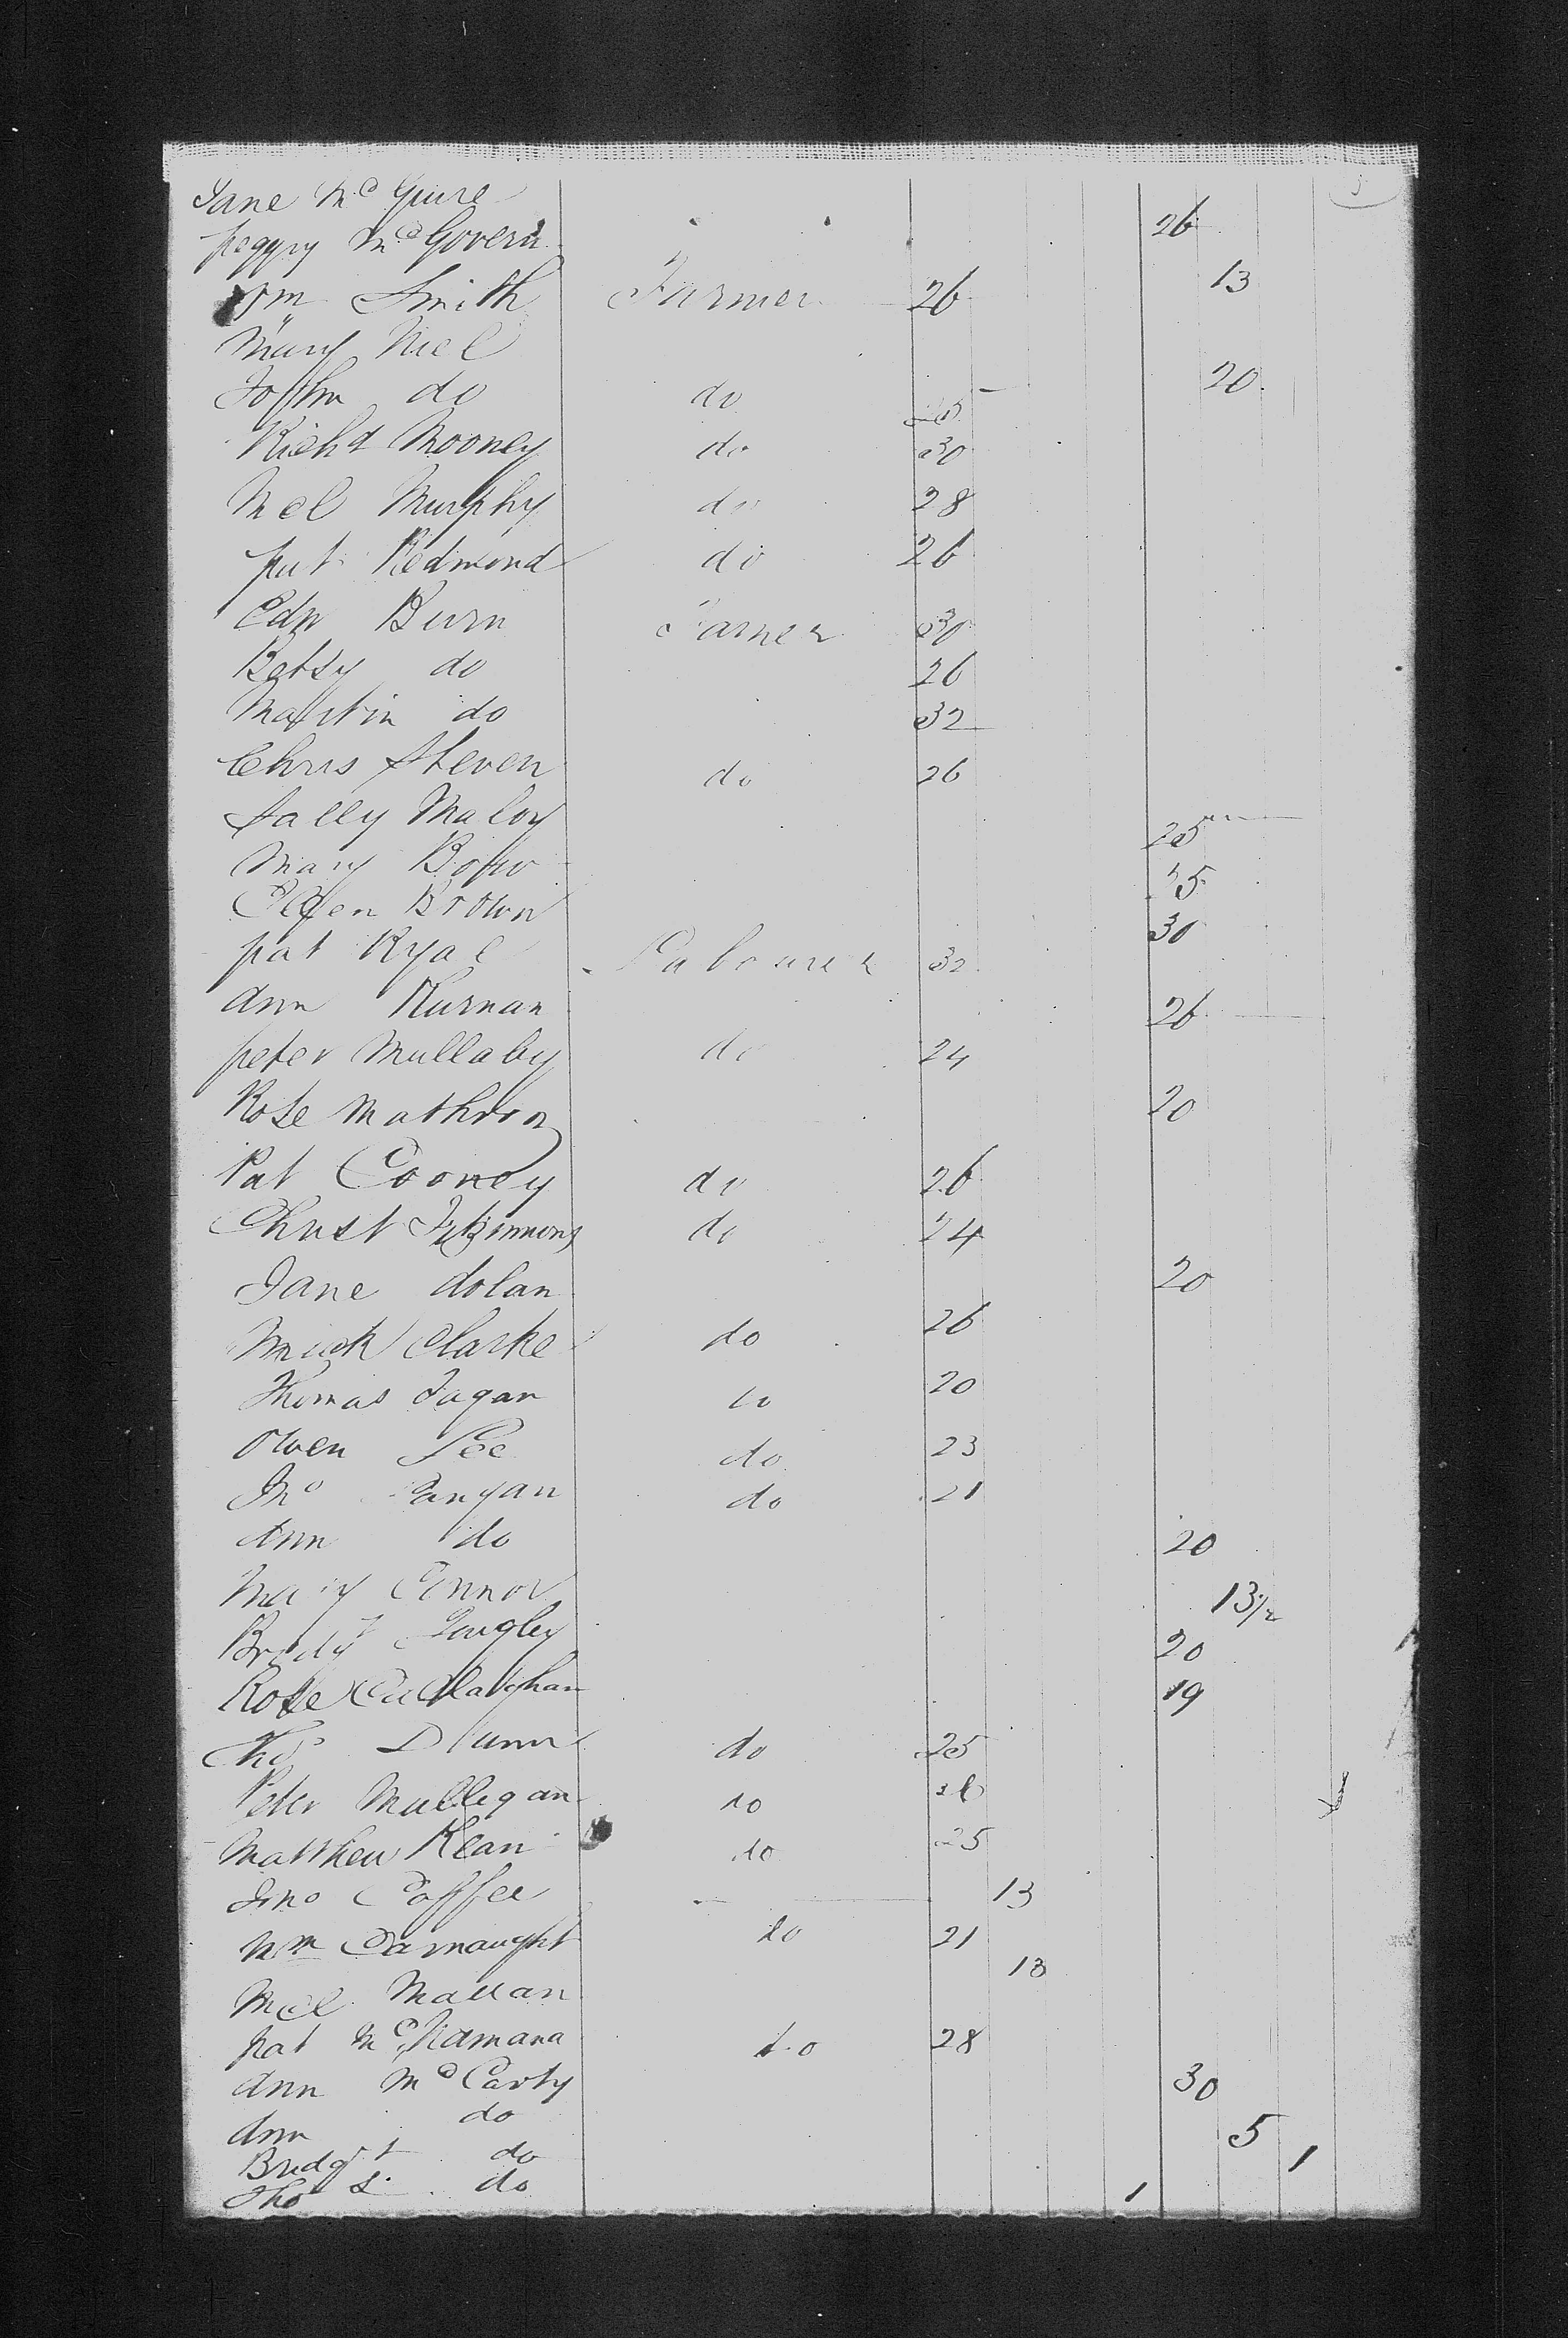 Jane McGuire 26
peggy McGovern 13
Wm Smith Farmer 26
Mary Niel 20
John do do 25
Richd Mooney do 30
Mel Murphy do 28
pat Redmond do 26
Edw Burn Farmer 30
Betsy do 26
Martin do 32
Chris Steven do 26
Sally Maloy 25
Mary 25
Ellen Brown 30
pat Labourer 32
Ann Kurnan 26
peter Mullaby do 24
Rose 20
Pat Cooney do 26
Christ Fitzimmons do 24
Jane dolan 20
Mick Clarke do 26
Thomas Fagan do 20
Owen Lee do 23
Jno do 21
Ann do 20
Mary Connor 13 1/2
20
Rose Callaughan 19
Tho Dunn do 25
Peter Mullegan do 26
Matthew Kean do 25
Jno Coffee 13
Wm Carnaught do 21
Mel 13
pat McNamara do 28
Ann McCarty 30
Ann do 5
Bridgt do 1
Thos do 1